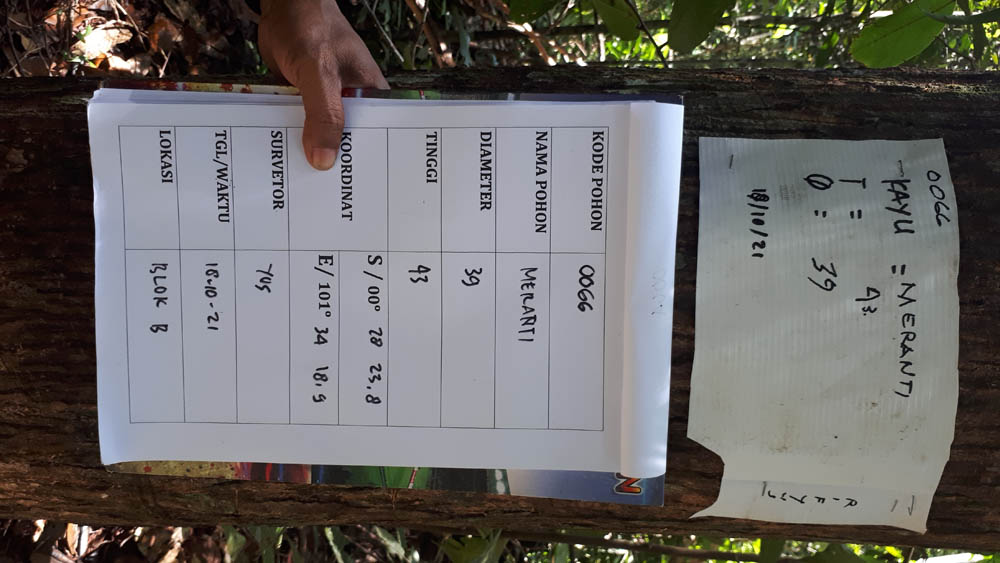 0066
KAYU = MERANTI
T = 43.
Ø = 39
18/10/21
N
KODE POHON 0066
NAMA POHON MERANTI
DIAMETER 39
TINGGI 43
KOORDINAT S / 00° 28 23.8
E/ 101° 34 18.9
SURVETOR YUS
TGL/WAKTU 18-10-21
LOKASI BLOK B